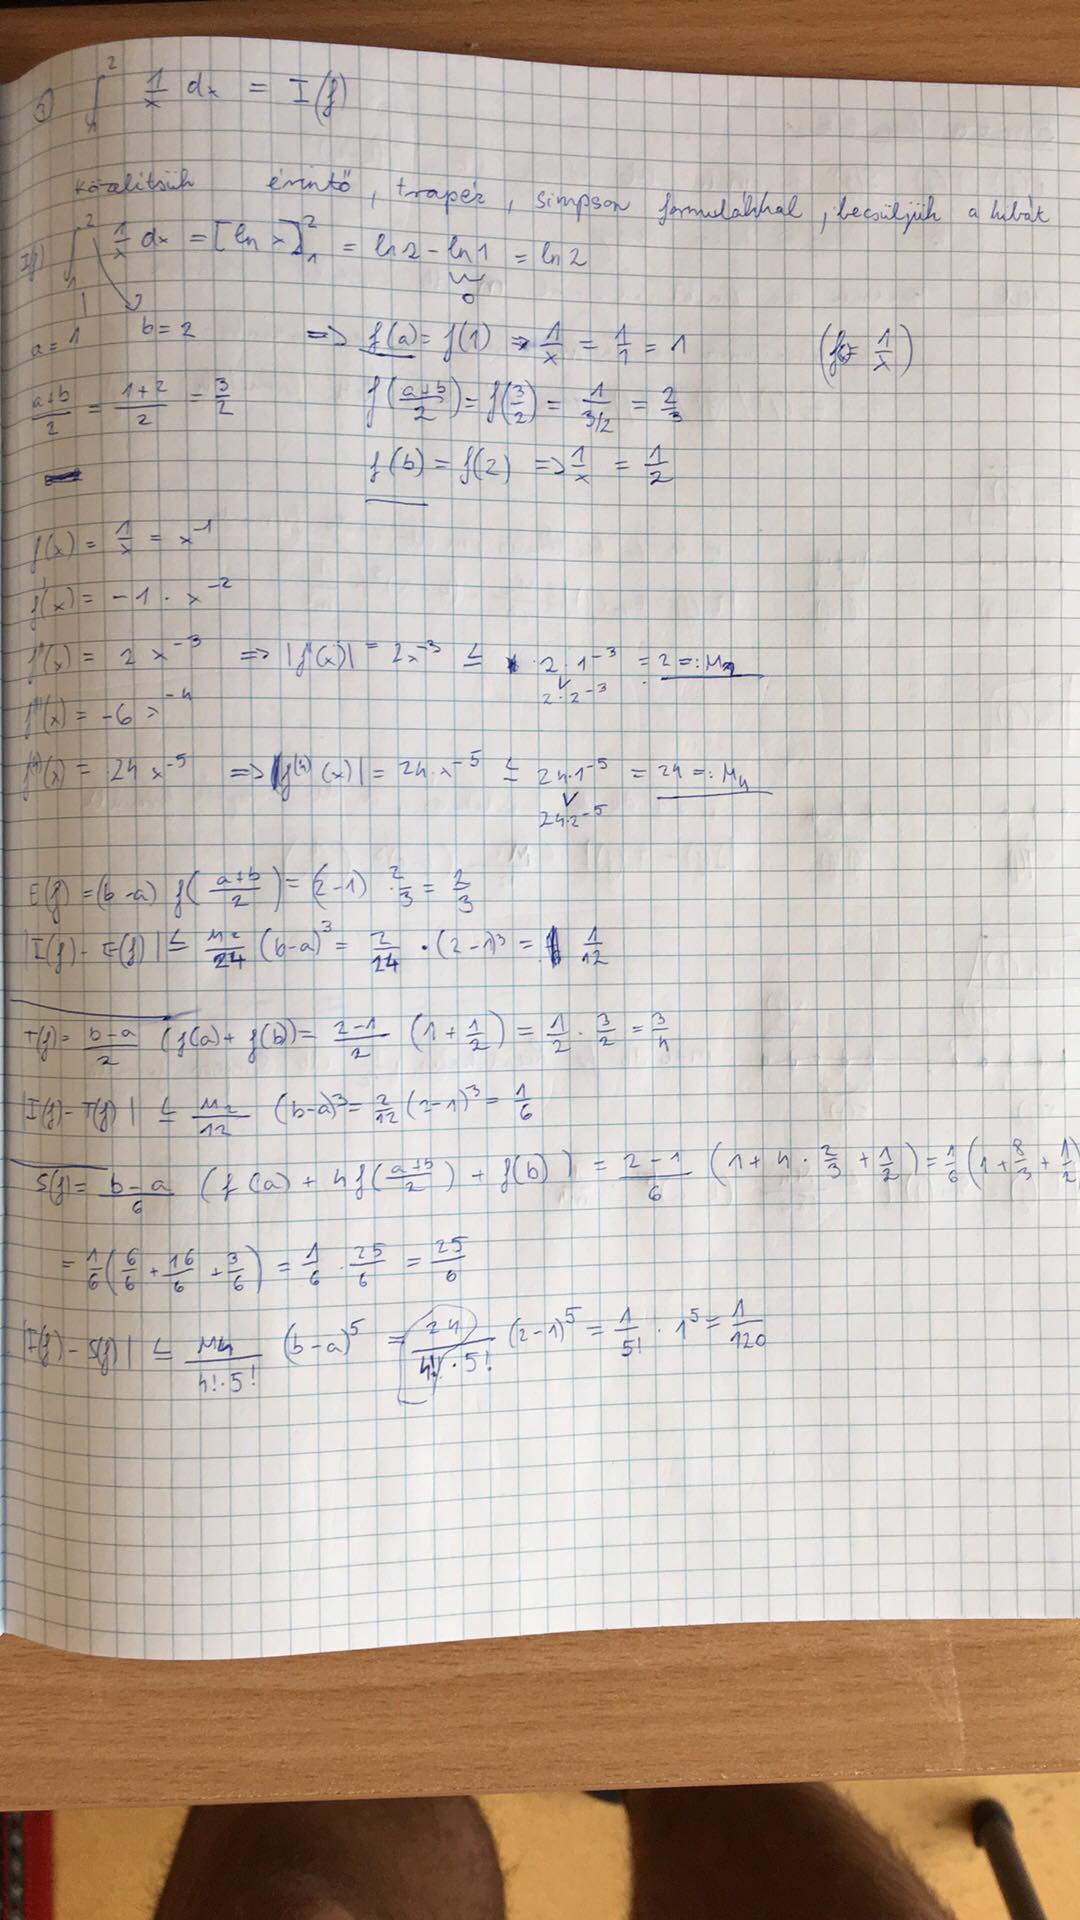 3) ∫₁² 1/x dx = I(f)
közelítsük érintő, trapéz, simpson formulákkal, becsüljük a hibát
I(f) ∫₁² 1/x dx = [ln x]₁² = ln2 - ln1 = ln2
0
a = 1 b = 2 => f(a) = f(1) => 1/x = 1/1 = 1 (f(x) = 1/x)
(a+b)/2 = (1+2)/2 = 3/2 f((a+b)/2) = f(3/2) = 1/(3/2) = 2/3
f(b) = f(2) => 1/x = 1/2
f(x) = 1/x = x⁻¹
f'(x) = -1 · x⁻²
f''(x) = 2 x⁻³ => |f''(x)| = 2x⁻³ ≤ 2 · 1⁻³ = 2 =: M₂
2·2⁻³
f'''(x) = -6 x⁻⁴
f⁽⁴⁾(x) = 24 x⁻⁵ => |f⁽⁴⁾(x)| = 24·x⁻⁵ ≤ 24·1⁻⁵ = 24 =: M₄
24·2⁻⁵
E(f) = (b-a) f((a+b)/2) = (2-1) · 2/3 = 2/3
|I(f) - E(f)| ≤ M₂/24 (b-a)³ = 2/24 · (2-1)³ = 1/12
T(f) = (b-a)/2 (f(a) + f(b)) = (2-1)/2 (1 + 1/2) = 1/2 · 3/2 = 3/4
|I(f) - T(f)| ≤ M₂/12 (b-a)³ = 2/12 (2-1)³ = 1/6
S(f) = (b-a)/6 (f(a) + 4f((a+b)/2) + f(b)) = (2-1)/6 (1 + 4 · 2/3 + 1/2) = 1/6 (1 + 8/3 + 1/2
= 1/6 (6/6 + 16/6 + 3/6) = 1/6 · 25/6 = 25/6
|I(f) - S(f)| ≤ M₄/(4!·5!) (b-a)⁵ = 24/(4!·5!) (2-1)⁵ = 1/5! · 1⁵ = 1/120